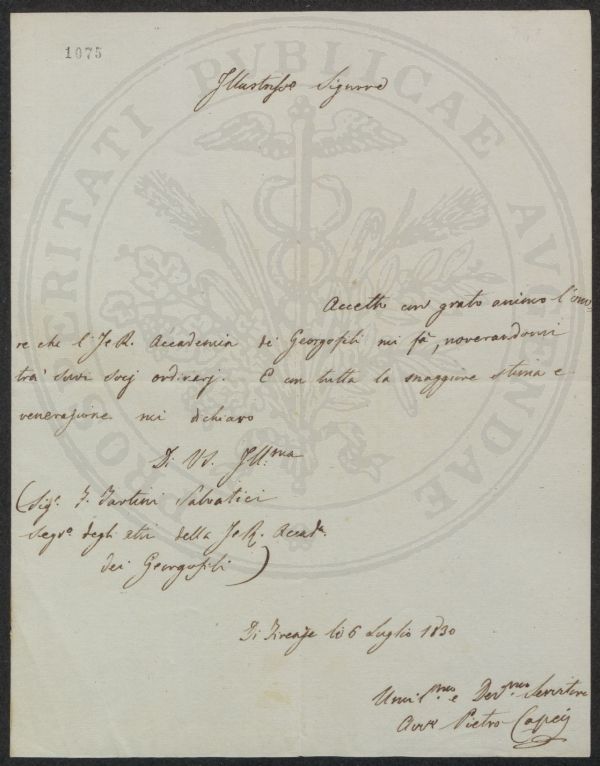 1075
Illustriss.e Signore
Accetto con grato animo l'ono=
re che l'I e R. Accademia de' Georgofili mi fà, noverandomi
tra' suoi socj ordinarj. E con tutta la maggiore stima e
venerazione mi dichiaro
Di VS. Ill.ma
(Sig.e F. Tartini Salvatici
Seg.o degli atti della I e R. Accad.a
dei Georgofili)
Di Firenze li 6 Luglio 1830
Umil.mo e Dev.mo Servitore
Avv. Pietro Capei
PROSPERITATI PVBLICAE AVGENDAE